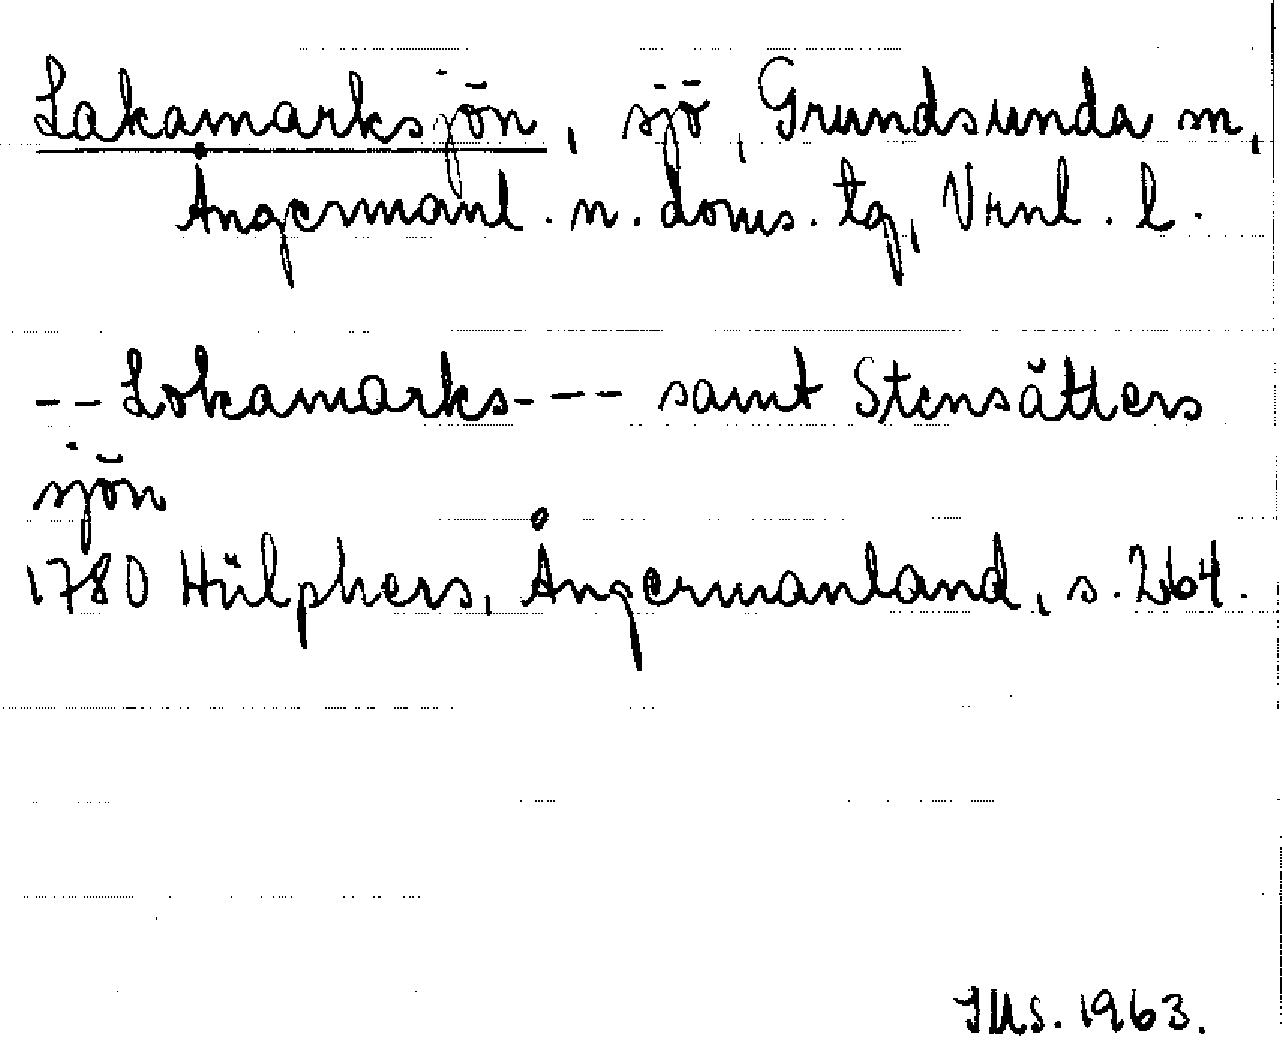 Lakamarksjön, sjö, Grundsunda sn,
Ångermanl. n. doms. tg, Vrnl. l.
--Lokamarks--- samt Stensätters
sjön
1780 Hülphers, Ångermanland, s. 264.
IMS. 1963.